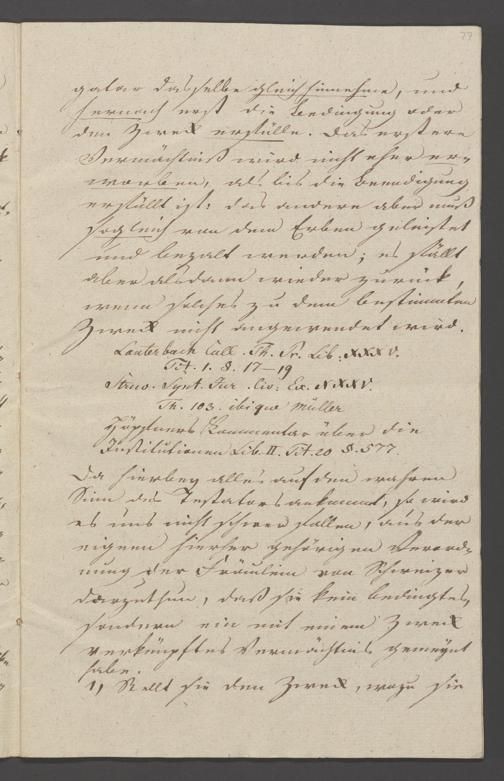 77
gatar dasselbe gleich hinnehme, und
hernach erst die Bedingung oder
den Zweck erfülle. Das erstere
Vermächtniß wird nicht eher er-
worben, als bis die Beendigung
erfüllt ist; das andere aber muß
sogleich von dem Erben geleistet
und bezalt werden; es fällt
aber alsdann wieder zurück,
wenn solches zu dem bestimmten
Zweck nicht angewendet wird.
Lauterbach Coll. Th. Pr. Lib. XXXV.
Tit. 1. §. 17–19
Struv. Synt. Jur. Civ: Ex. XXXV.
Th. 103. ibique Müller
Höpfners Kommentar über die
Institutionen Lib. II. Tit. 20 §. 577.
Da hierbey alles auf den wahren
Sinn des Testators ankommt, so wird
es uns nicht schwer fallen, aus der
eigenen hierher gehörigen Verord-
nung der Fräulein von Schweizer
darzuthun, daß sie kein bedingtes,
sondern ein mit einem Zweck
verknüpftes Vermächtnis gemeynt
habe.
1) Stellt sie den Zweck, wozu sie